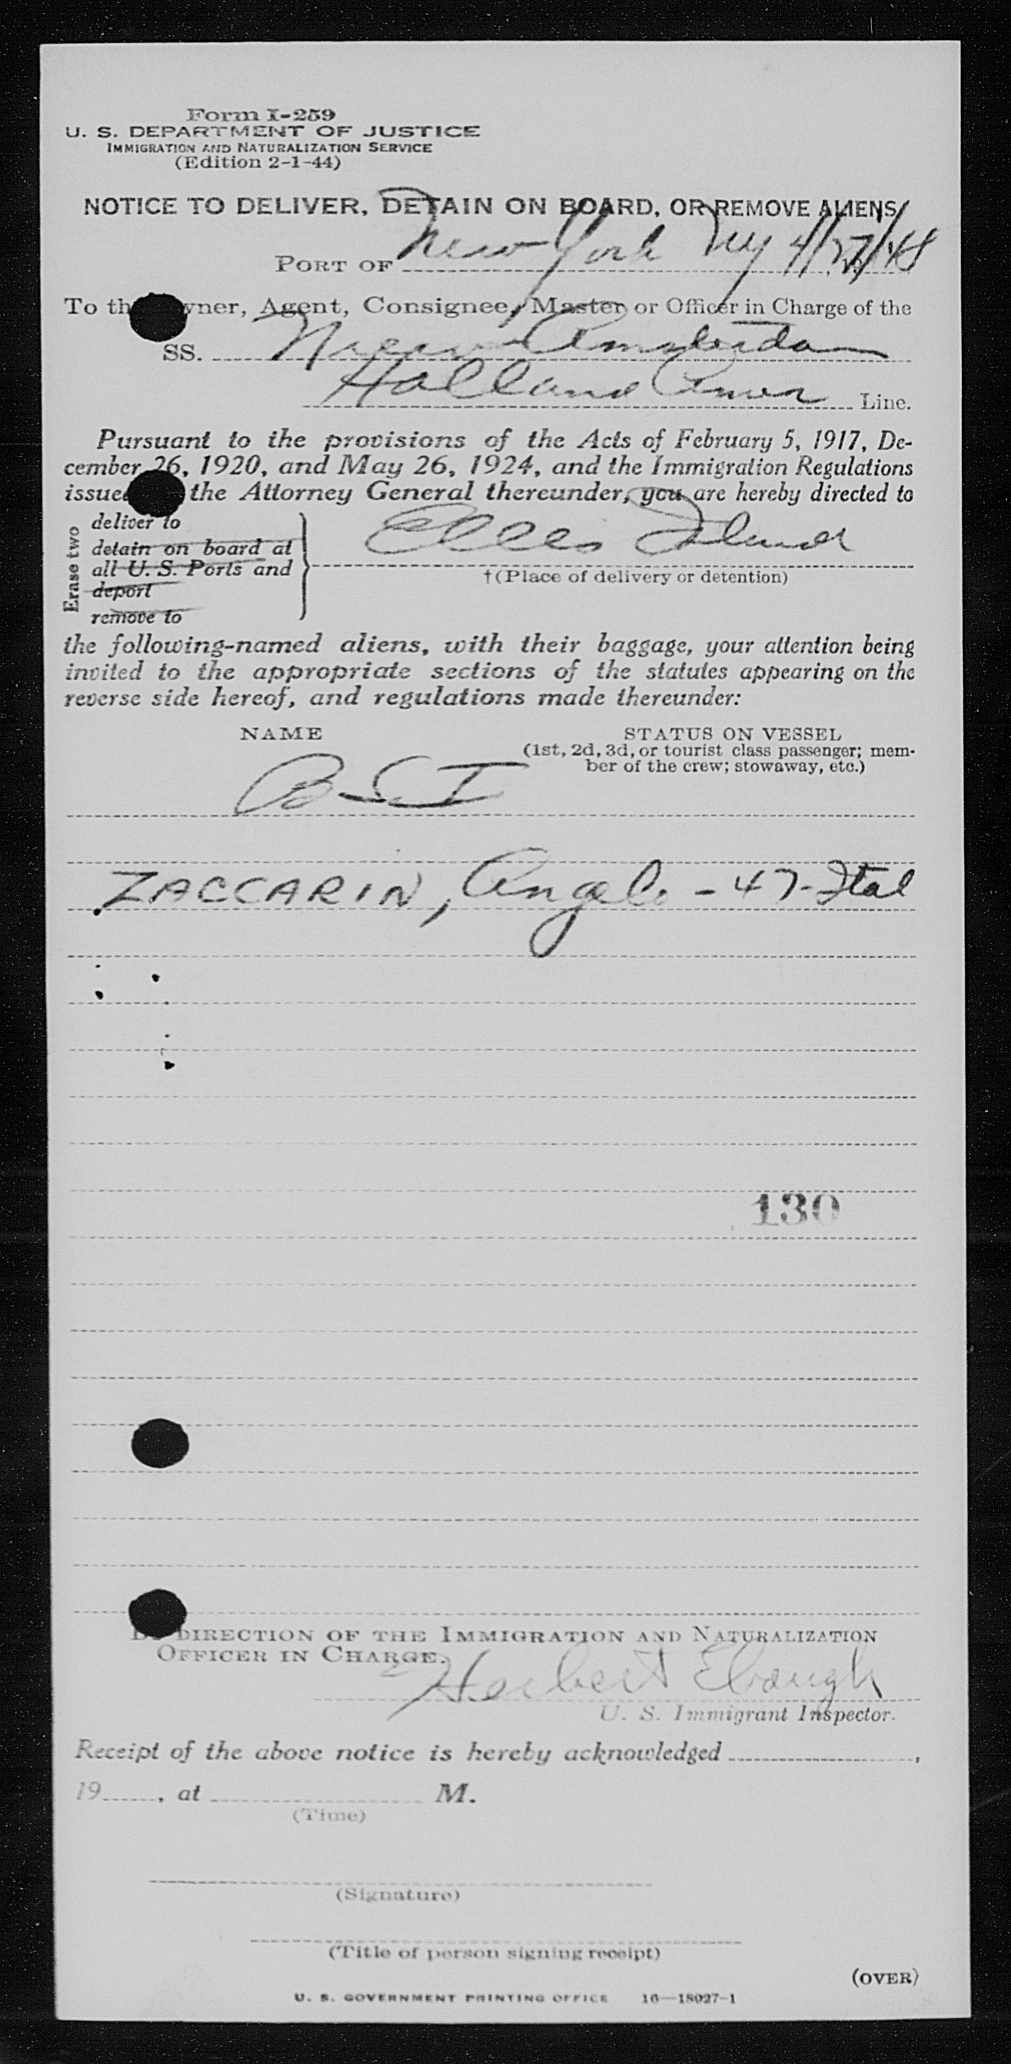 Form I-259
U. S. DEPARTMENT OF JUSTICE
IMMIGRATION AND NATURALIZATION SERVICE
(Edition 2-1-44)
NOTICE TO DELIVER, DETAIN ON BOARD, OR REMOVE ALIENS
PORT OF New York NY 4/27/48
To th wner, Agent, Consignee, Master or Officer in Charge of the
SS. Nieuw Amsterdam
Holland Amer Line.
Pursuant to the provisions of the Acts of February 5, 1917, De-
cember 26, 1920, and May 26, 1924, and the Immigration Regulations
issued the Attorney General thereunder, you are hereby directed to
Erase two
deliver to
detain on board at
all U. S. Ports and
deport
remove to
Ellis Island
†(Place of delivery or detention)
the following-named aliens, with their baggage, your attention being
invited to the appropriate sections of the statutes appearing on the
reverse side hereof, and regulations made thereunder:
NAME STATUS ON VESSEL
(1st, 2d, 3d, or tourist class passenger; mem-
ber of the crew; stowaway, etc.)
B-S-I
ZACCARIN, Angelo - 47-Ital
130
DIRECTION OF THE IMMIGRATION AND NATURALIZATION
OFFICER IN CHARGE.
Herbert Ebaugh
U. S. Immigrant Inspector.
Receipt of the above notice is hereby acknowledged ,
19 , at M.
(Time)
(Signature)
(Title of person signing receipt)
(OVER)
U. S. GOVERNMENT PRINTING OFFICE 16—18027-1